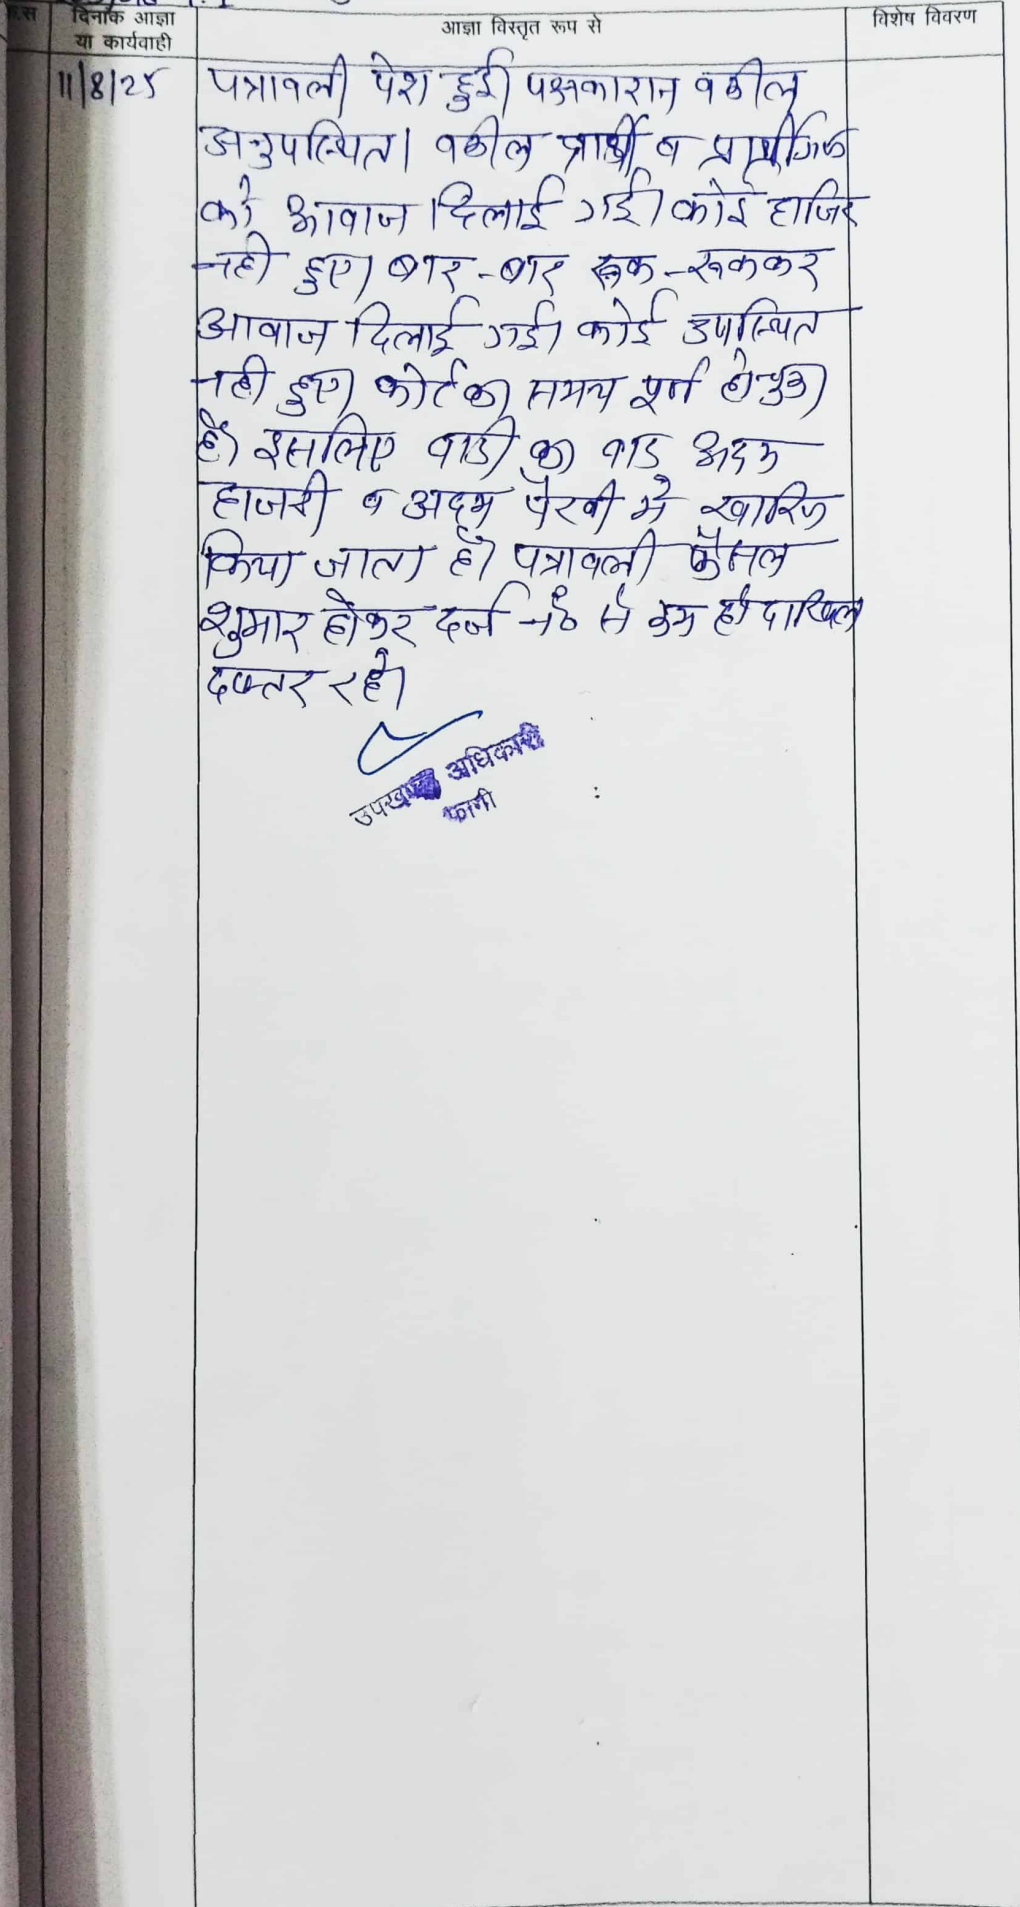 दिनांक आज्ञा
या कार्यवाही
आज्ञा विस्तृत रूप से
विशेष विवरण
11/8/25
पत्रावली पेश हुई। पक्षकारान वकील
अनुपस्थित। वकील प्रार्थी व
को आवाज दिलाई गई। कोई हाजिर
नही हुए। बार-बार रूक-रूककर
आवाज दिलाई गई। कोई उपस्थित
नही हुए। कोर्ट का समय पूर्ण हो चुका
है। इसलिए वादी का वाद अदम
हाजरी व अदम पैरवी मे खारिज
किया जाता है। पत्रावली फैसल
शुमार होकर दर्ज नं० से कम हो दाखिल
दफ्तर रहे।
उपखण्ड अधिकारी
फागी